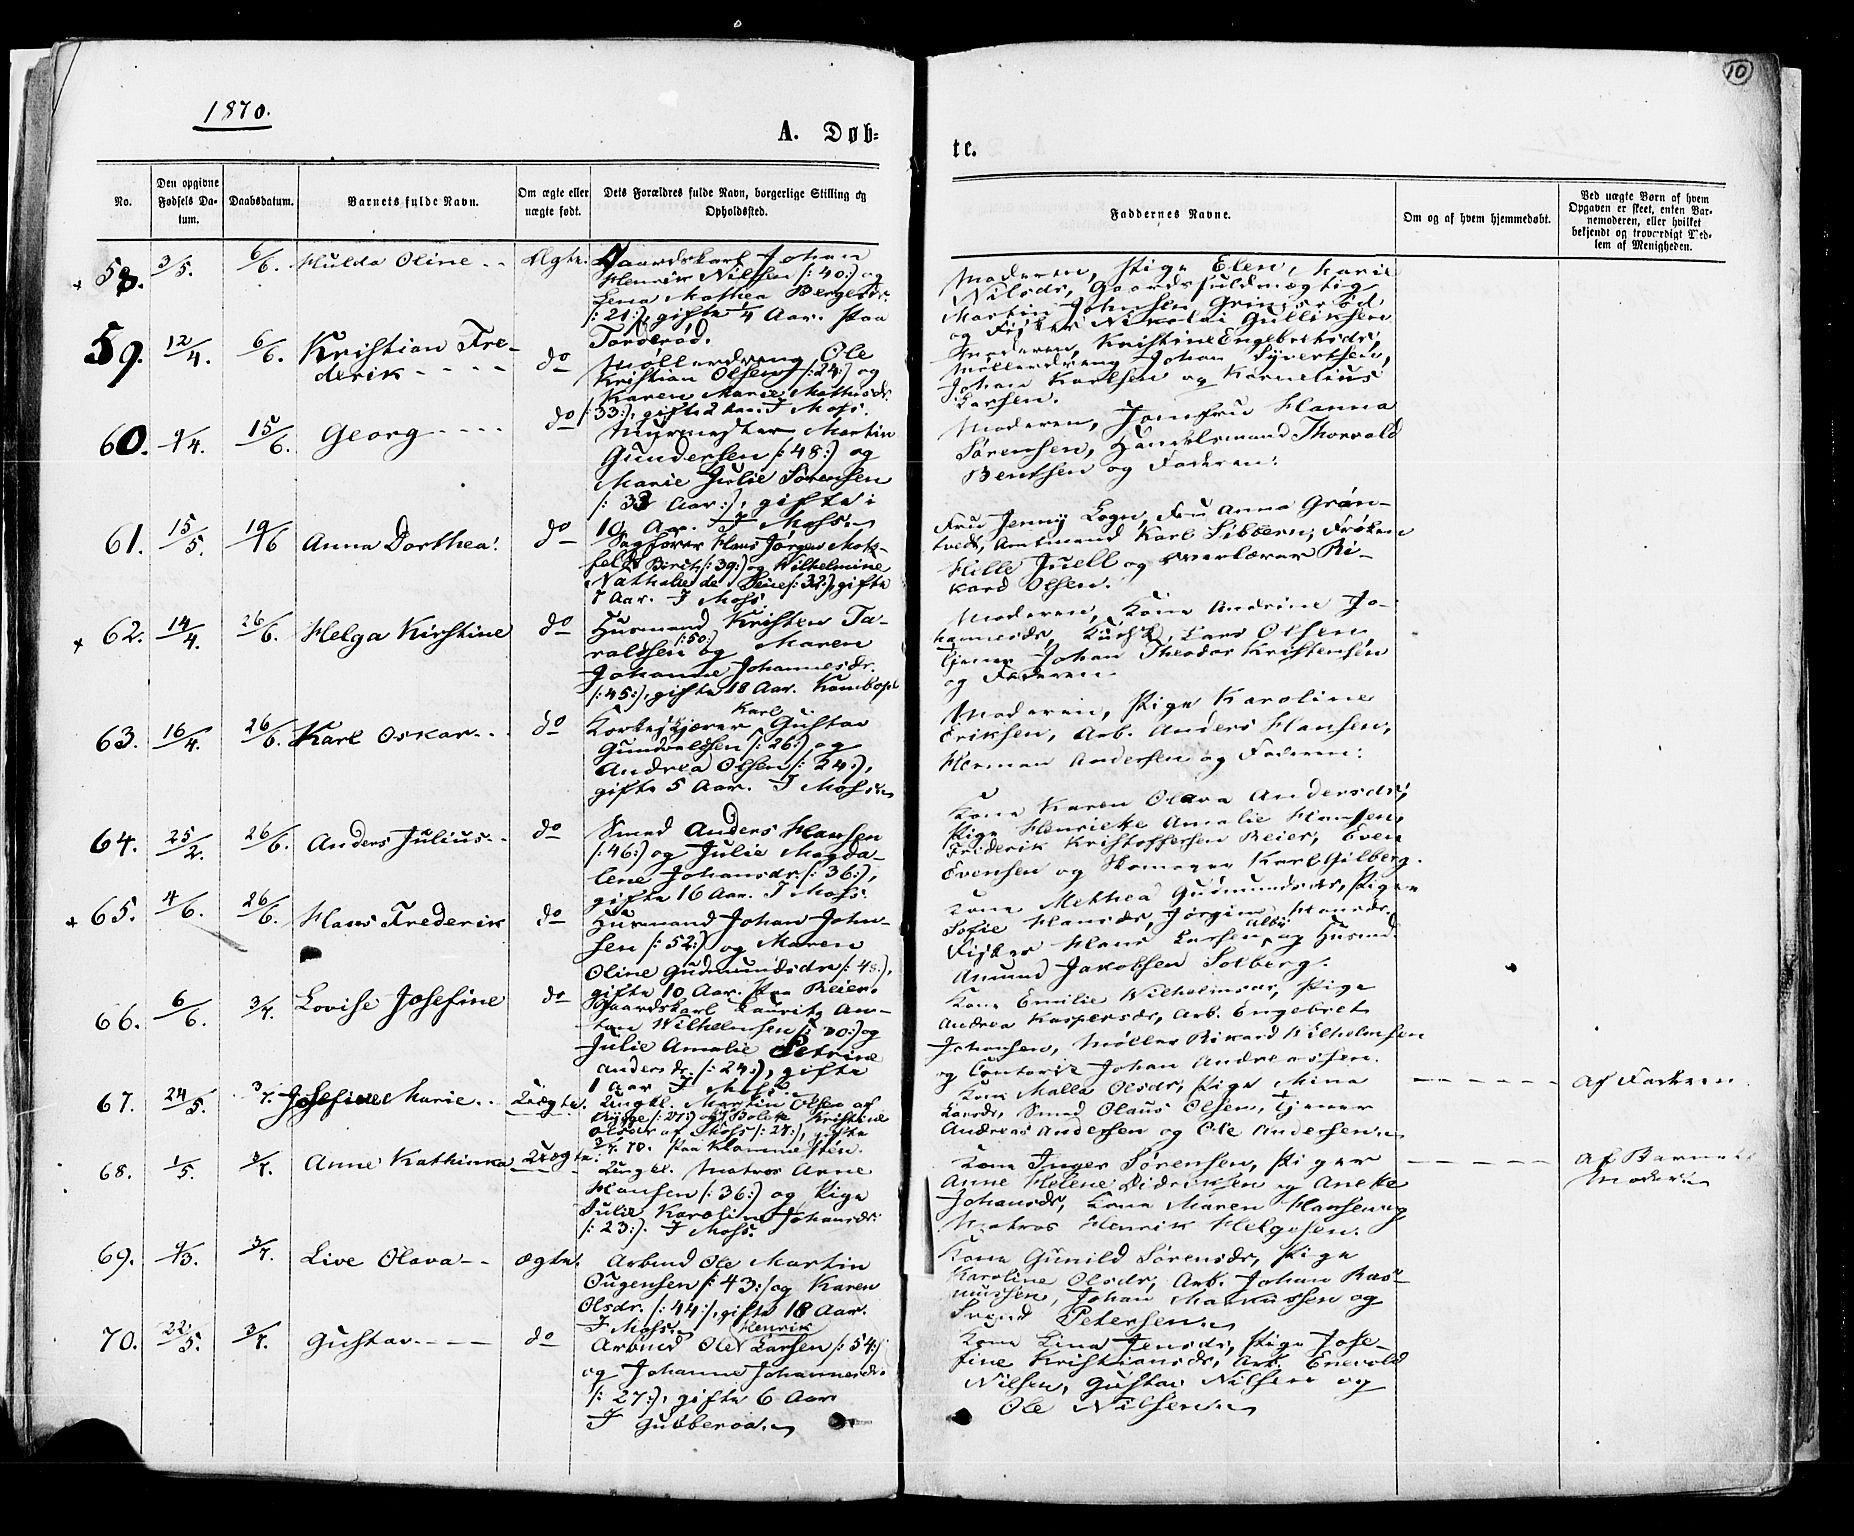 1870.
10
A. Døb-
te.
No.
Den opgivne
Fødsels Da-
tum.
Daabsdatum.
Barnets fulde Navn.
Om ægte eller
uægte født.
Dets Forældres fulde Navn, borgerlige Stilling og
Opholdssted.
Faddernes Navne.
Om og af hvem hjemmedøbt.
Ved uægte Børn af hvem
Opgaven er skeet, enten Bar-
nemoderen, eller hvilket
bekjendt og troværdigt Med-
lem af Menigheden.
58. 3/5. 6/6. Hulda Oline Ægte.
Gaardskarl Johan
Henrik Nilssen /:40:/ og
Lena Mathea Bergesdr.
/:21:/, gifte 1/4 Aar. Paa
Torderød.
Moderen, Pige Elen Marie
Nilsdr, Gaardsfuldmægtig
Martin Johnsen Grimsrød
og Fisker Nikolai Gulliksen
59. 12/4. 6/6. Kristian Fre-
derik do
Møllerdreng Ole
Kristian Olsen /:24:/ og
Karen Marie Mathisdr.
/:33:/, gifte 2 Aar. I Moss.
Moderen, Kristine Engebretsdr,
Møllerdreng Johan Syvertsen,
Johan Karlsen og Kornelius
Larsen.
60. 9/4. 15/6. Georg do
Murmester Martin
Gundersen /:48:/ og
Marie Julie Sørensen
/:33 Aar:/, gifte i
10 Aar. I Moss.
Moderen, Jomfru Hanna
Sørensen, Handelsmand Thorvald
Bentsen og Faderen.
61. 15/5. 19/6 Anna Dorthea. do
Sagfører Hans Jørgen Mok-
feldt Birch /:39:/ og Wilhelmine
Nathalie de Seue /:32:/, gifte
7 Aar. I Moss.
Fru Jenny Logn, Fru Anna Grøn-
tvedt, Amtmand Karl Sibbern, Frøken
Hille Juell og Overlærer Ri-
kard Olsen.
62. 14/4. 26/6. Helga Kirstine do
Husmand Kristen Ta-
raldsen /:50:/ og Maren
Johanne Johannesdr.
/:45:/, gifte 18 Aar. Kambo
Moderen, Kone Andrine Jo-
hannesdr, Lars Olsen,
Tjener Johan Theodor Kristensen
og Faderen.
63. 16/4. 26/6. Karl Oskar do
Korkeskjærer Karl Gustav
Gundvaldsen /:26:/ og
Andrea Olsen /:24:/,
gifte 5 Aar. I Moss.
Moderen, Pige Karoline
Eriksen, Arb. Anders Hansen,
Herman Andersen og Faderen.
64. 25/2. 26/6. Anders Julius do
Smed Anders Hansen
/:46:/ og Julie Magda-
lene Johansdr. /:36:/,
gifte 16 Aar. I Moss.
Kone Karen Olava Andersdr,
Pige Henrikke Amalie Hansen,
Friderik Kristoffersen Reier, Even
Evensen og Skomager Karl Gilberg.
65. 4/6. 26/6. Hans Frederik do
Husmand Johan John-
sen /:52:/ og Maren
Oline Gudmundsdr /:48:/,
gifte 10 Aar. Paa Reier.
Kone Mathea Gudmundsdr, Piger
Sofie Hansdr, Jørgine Hansdr
Fisker Hans Larsen Alby og Husmd.
Amund Jakobsen Solberg.
66. 6/6. 3/7. Lovise Josefine do
Gaardskarl Laurits An-
ton Wilhelmsen /:20:/ og
Julie Amalie Petrine
Andersdr. /:24:/, gifte
1 Aar I Moss.
Kone Emilie Wilhelmsdr, Pige
Andrea Kaspersdr, Arb. Engebret
Johansen, Møller Rikard Wilhelmsen
og Contorist Johan Andreassen.
67. 24/5. 3/7. Josefine Marie Uægte.
Ungkl. Martin Olsen af
Rygge /:27:/ og Bolette Kristine
Olsdr af Moss /:27:/, gifte
3/7 70. Paa
Kone Malla Olsdr, Pige Mina
Larsdr, Smed Olaus Olsen, Tjener
Andreas Andersen og Ole Andersen.
Af Faderen
68. 1/5. 3/7. Anne Kathinka Uægte.
Ungkl. Matros Arne
Hansen /:36:/ og Pige
Julie Karoline Johansdr
/:23:/. I Moss.
Kone Inger Sørensen, Piger
Anne Helene Didriksen og Aneke
Johansdr, Kone Maren Hansen og
Matros Henrik Helgesen.
Af Barnets
Moder
69. 9/3. 3/7. Live Olava Ægte.
Arbmd Ole Martin
Ougensen /:43:/ og Karen
Olsdr. /:44:/, gifte 18 Aar.
I Moss.
Kone Gunild Sørensdr, Pige
Karoline Olsdr, Arb. Johan Ras-
mussen, Johan Markussen og
Svend Petersen.
70. 22/5. 3/7. Gustav do
Arbmd Ole Henrik Larsen /:54:/
og Johanne Johannesdr.
/:27:/, gifte 6 Aar
I Gubberoa.
Kone Lina Jensdr, Pige Jose-
fine Kristiansdr, Arb. Enevold
Nilsen, Gustav Nilsen og
Ole Nilsen.